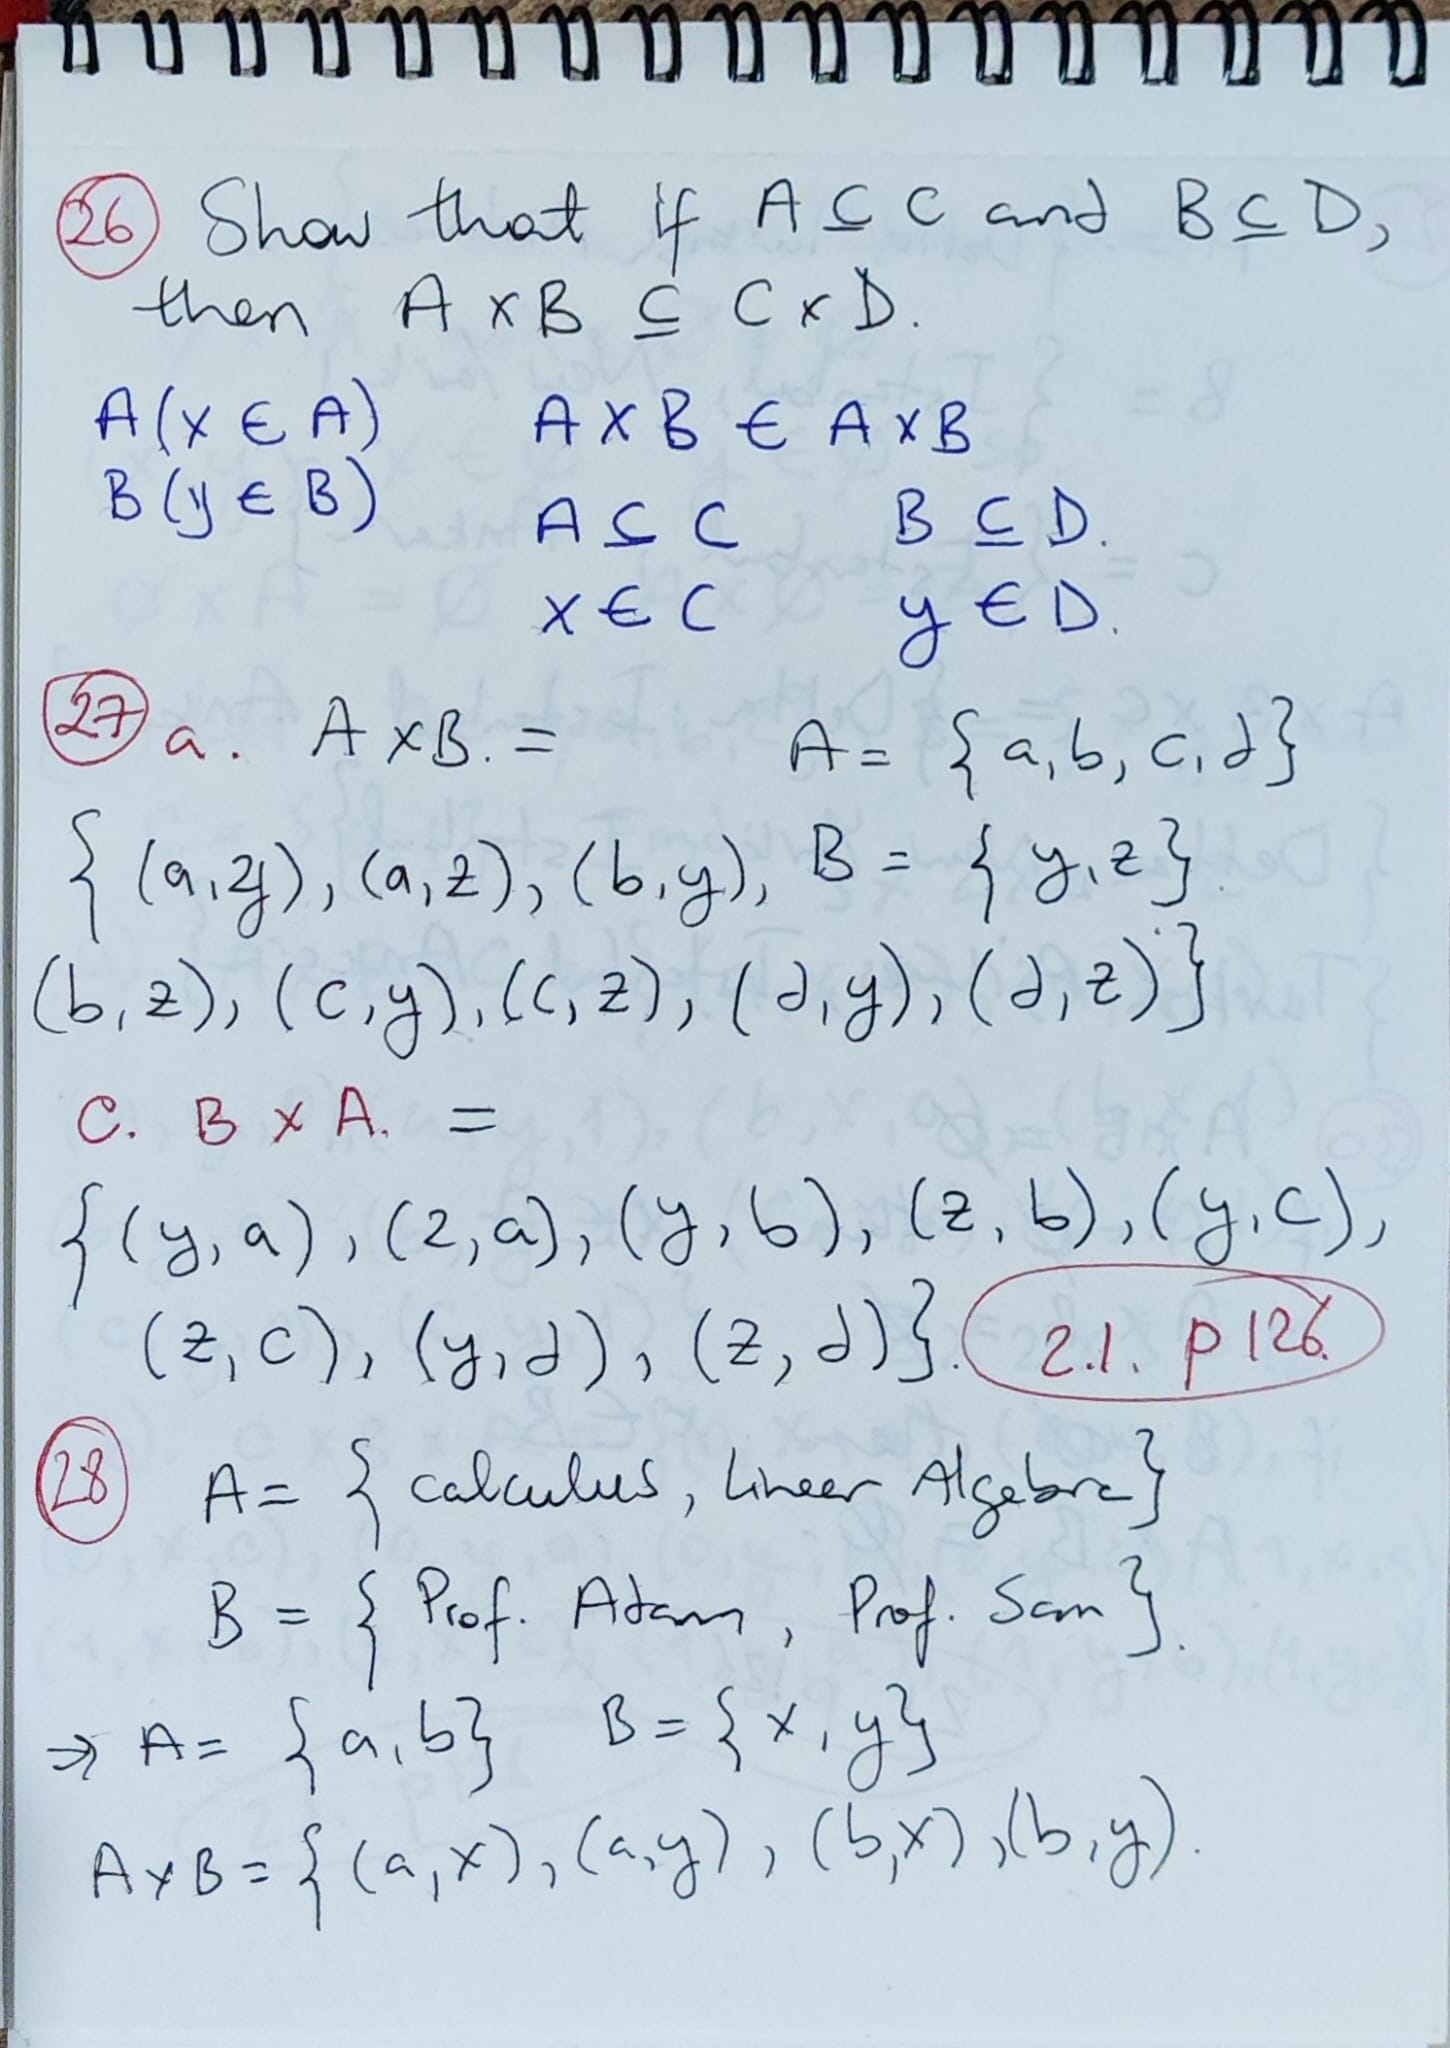 26 Show that if A ⊆ C and B ⊆ D,
then A x B ⊆ C x D.
A(x ∈ A) A X B ∈ A x B
B(y ∈ B) A ⊆ C B ⊆ D.
x ∈ C y ∈ D.
27 a. A x B. = A = {a, b, c, d}
{(a, y), (a, z), (b, y), B = {y, z}.
(b, z), (c, y), (c, z), (d, y), (d, z)}
C. B x A. =
{(y, a), (z, a), (y, b), (z, b), (y, c),
(z, c), (y, d), (z, d)}. 2.1. p 126.
28 A = {calculus, Linear Algebra}
B = {Prof. Adam, Prof. Sam}.
⇒ A = {a, b} B = {x, y}
A x B = {(a, x), (a, y), (b, x), (b, y).